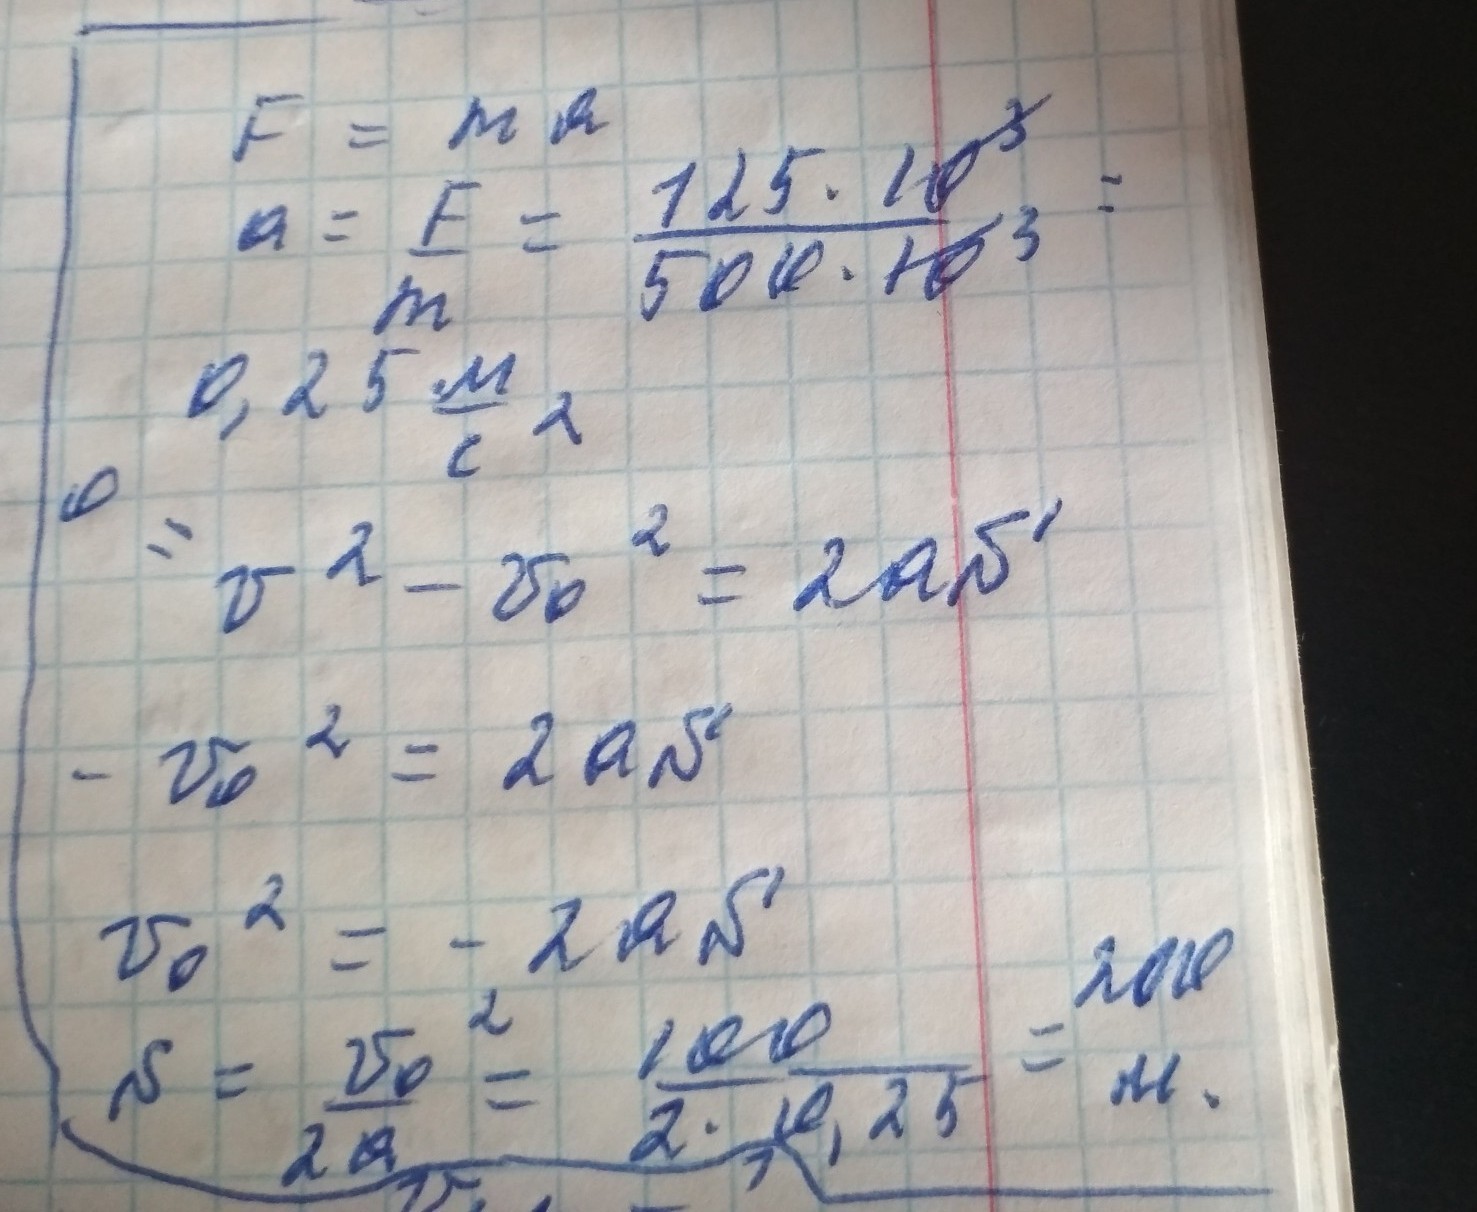 F = ma
a = F/m = 125 · 10³ / 500 · 10³ =
0,25 м/с²
0 =
v² - v₀² = 2as
- v₀² = 2as
v₀² = - 2as
s = v₀²/2a = 100 / 2 · 0,25 = 200 м.